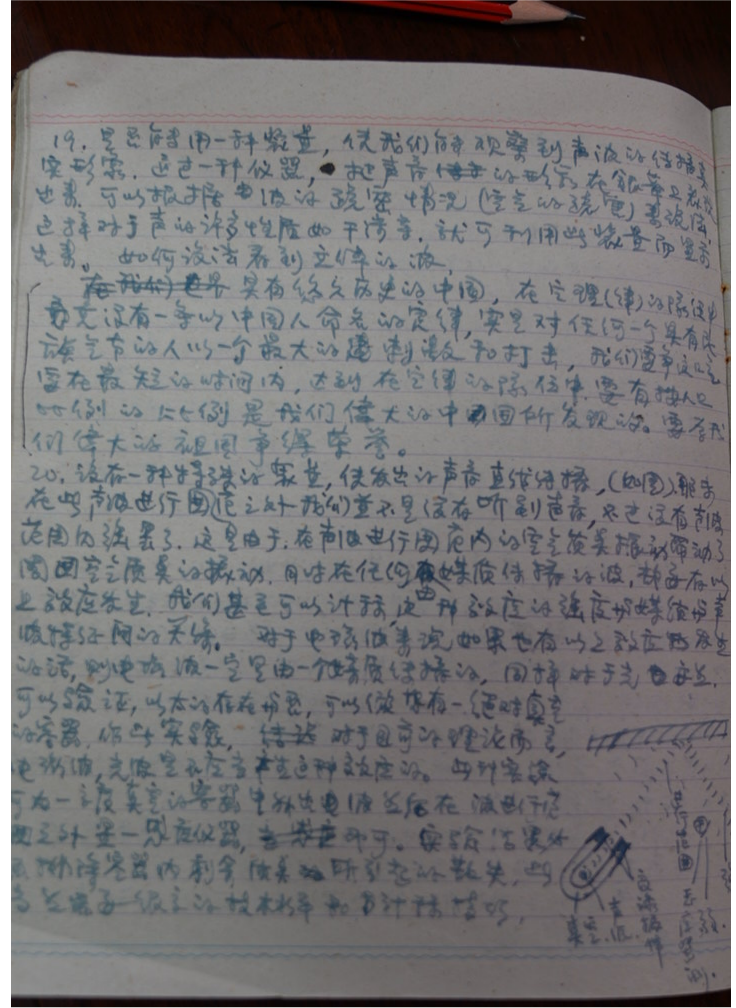 19. 是否能用一种装置，使我们能观察到声波的传播真
实形象。通过一种仪器，把声音的形象在银幕上表现
出来。可以根据声波的疏密情况（空气的疏密）来说位，
这样对于声的许多性质如干涉等，就可利用此装置而显示
出来。如何设法看到立体的波，
具有悠久历史的中国，在定理（律）的队伍中
竟没有一条以中国人命名的定律，实是对任何一个具有民
族气节的人以一个最大的刺激和打击，我们要争这口气
要在最短的时间内，达到在定律的队伍中，要有按人口
比例的比例是我们偉大的中国所发现的。要为我
们偉大的祖国争得荣誉。
20. 设有一种特殊的装置，使发出的声音直线传播，（如图）那末
在此声波进行围范之外我们並不是没有听到声音，不过没有声波
范围内强罢了。这是由于，在声波进行围范内的空气质点振动带动了
周围空气质点的振动。同时在任何由媒质传播的波，都要有以
上效应发生。我们甚至可以计算，这种效应的强度与媒质与声
波特征间的关系。对于电磁波来说如果也有以上效应发生
的话，则电磁波一定是由一个媒质传播的，同样对于光也亦然。
可以验证，以太的存在与否，可以做成有一绝对真空
的容器，作此实验，对于目前的理论而言，
电磁波，光波是不应当产生这种效应的。此种实验
可为一高度真空的容器中补出电波然后在波进行范
围之外置一灵敏仪器，即可。实验结果必
须排除容器内剩余质点所引起的散失，此
当然需要很高的技术水平和计算技巧，
真空 声源 交流操作 进行范围 无 仪器 测.